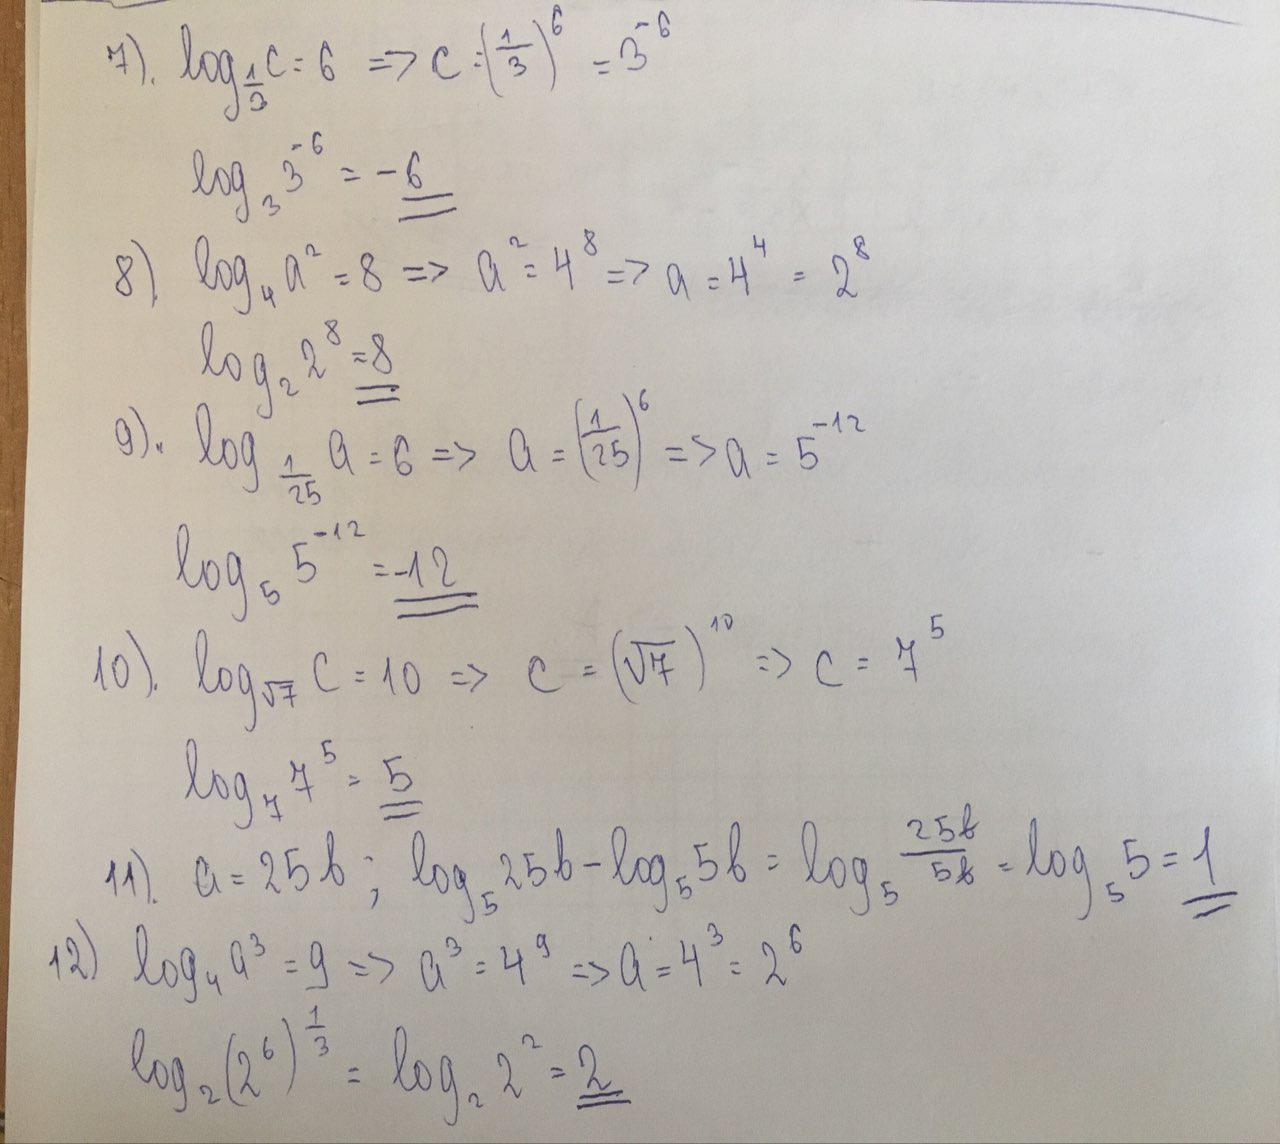 7). log_{1/3} c = 6 => c = (1/3)^6 = 3^{-6}
log_3 3^{-6} = -6
8). log_4 a^2 = 8 => a^2 = 4^8 => a = 4^4 = 2^8
log_2 2^8 = 8
9). log_{1/25} a = 6 => a = (1/25)^6 => a = 5^{-12}
log_5 5^{-12} = -12
10). log_{√7} c = 10 => c = (√7)^{10} => c = 7^5
log_7 7^5 = 5
11). a = 25b ; log_5 25b - log_5 5b = log_5 25b/5b = log_5 5 = 1
12) log_4 a^3 = 9 => a^3 = 4^9 => a = 4^3 = 2^6
log_2 (2^6)^{1/3} = log_2 2^2 = 2